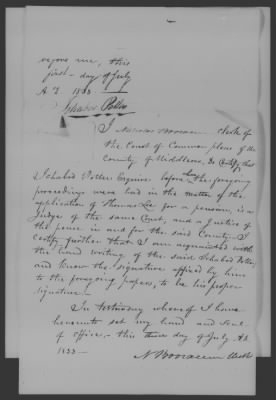 before me, this
first day of July
A D 1833
Ichabod Potter
I Nicholas Booraem Clerk of
the Court of Common pleas of the
County of Middlesex, do Certify that
Ichabod Potter Esquire before whom the foregoing
proceedings were had in the matter of the
application of Thomas Lee for a pension, is a
Judge of the same Court, and a justice of
the peace in and for the said County. I
certify further that I am acquainted with
the hand writing of the said Ichabod Potter,
and know the signature affixed by him
to the foregoing papers, to be his proper
signature—
In testimony whereof I have
hereunto set my hand and seal
of office,— this day of July A.D.
1833—
N Booraem Clerk